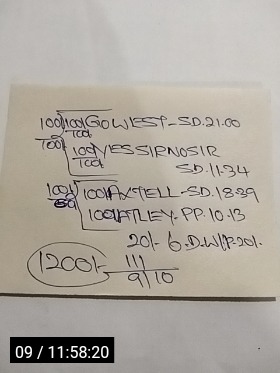 100/ 100/ GOWEST - SD.21.00
100/ 100/
100/ YESSIRNOSIR
100/ SD.11.34
100/ 100/ AXTELL - SD.18.39
50/ 100/ ATLEY - PP.10.13
20/- 6.D.W/P-20/-
1200/- 111
9/10
09 / 11:58:20